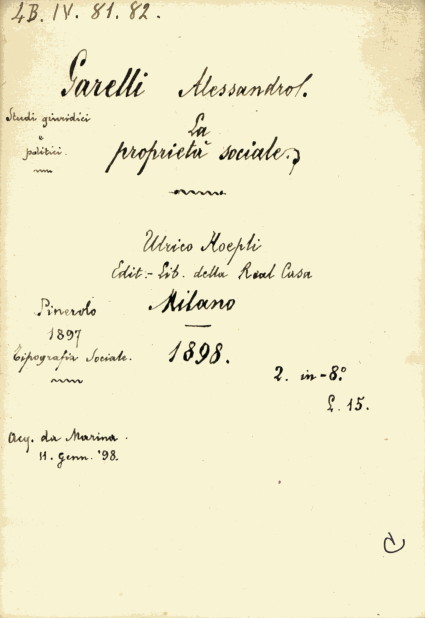 4B. IV. 81. 82.
Garelli Alessandro.
Studi giuridici
e
politici.
La
proprietà sociale.
Ulrico Hoepli
Edit.- Lib. della Real Casa
Milano
1898.
Pinerolo
1897
Tipografia Sociale.
2. in-8°
L. 15.
Acq. da Marina.
11. Genn. '98.